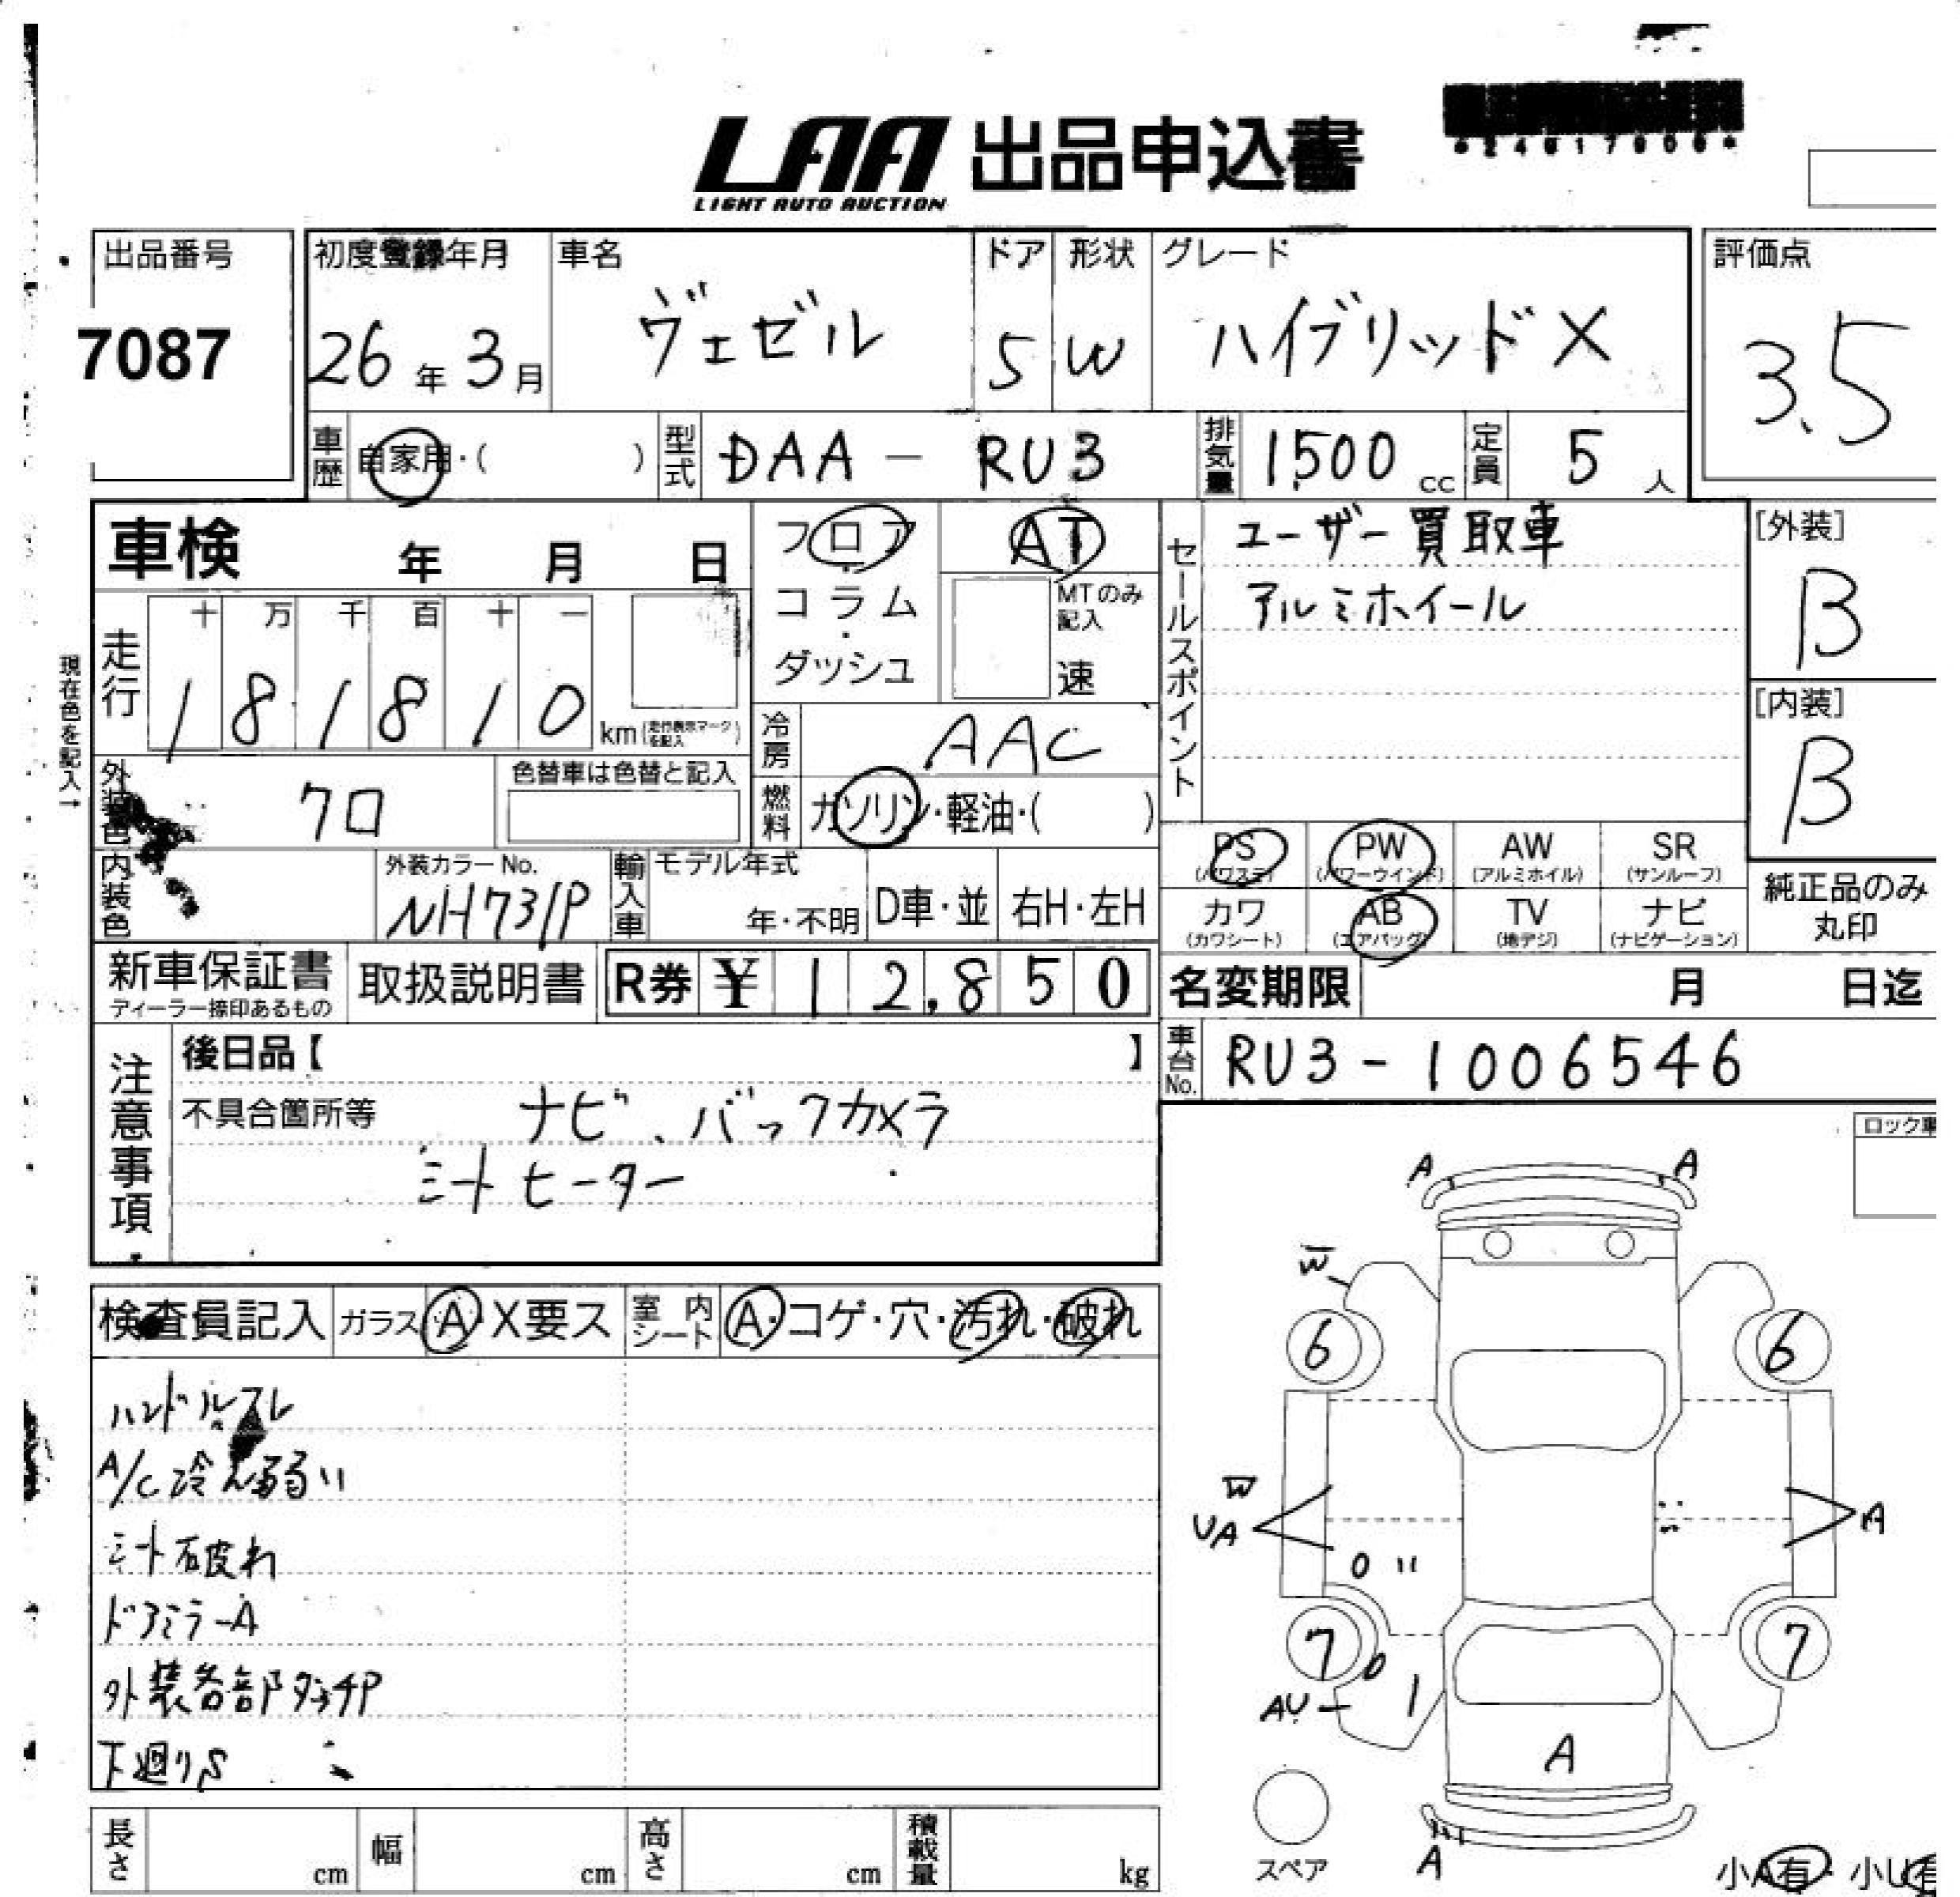 LAA 出品申込書
LIGHT AUTO AUCTION
出品番号
7087
初度登録年月
26年3月
車名
ヴェゼル
ドア
5
形状
W
グレード
ハイブリッドX
評価点
3.5
車歴 自家用・( )
型式 DAA-RU3
排気量 1500 cc
定員 5 人
車検 年 月 日
フロア・コラム・ダッシュ
AT
MTのみ記入
速
セールスポイント
ユーザー買取車
アルミホイール
[外装]
B
[内装]
B
現在色を記入→
走行
十 万 千 百 十 一
1 8 1 8 1 0 km
冷房 AAC
燃料 ガソリン・軽油・( )
外装色 クロ
色替車は色替と記入
内装色
外装カラーNo.
NH731P
輸入車 モデル年式
年・不明
D車・並
右H・左H
PS (パワステ)
PW (パワーウインド)
AW (アルミホイル)
SR (サンルーフ)
カワ (カワシート)
AB (エアバッグ)
TV (地デジ)
ナビ (ナビゲーション)
純正品のみ
丸印
新車保証書
ディーラー捺印あるもの
取扱説明書
R券 ¥ 12,850
名変期限 月 日迄
車台No. RU3-1006546
注意事項
後日品【 】
不具合箇所等 ナビ、バックカメラ
シートヒーター
検査員記入
ガラス A・X要ス
室内シート A・コゲ・穴・汚れ・破れ
ハンドルスレ
A/C冷え弱い
シート破れ
ドアミラーA
外装各部タッチP
下廻りS
A A
W
6 6
W
UA A
0
7 7
AU
A
A
スペア
小A有・小U有
長さ cm
幅 cm
高さ cm
積載量 kg